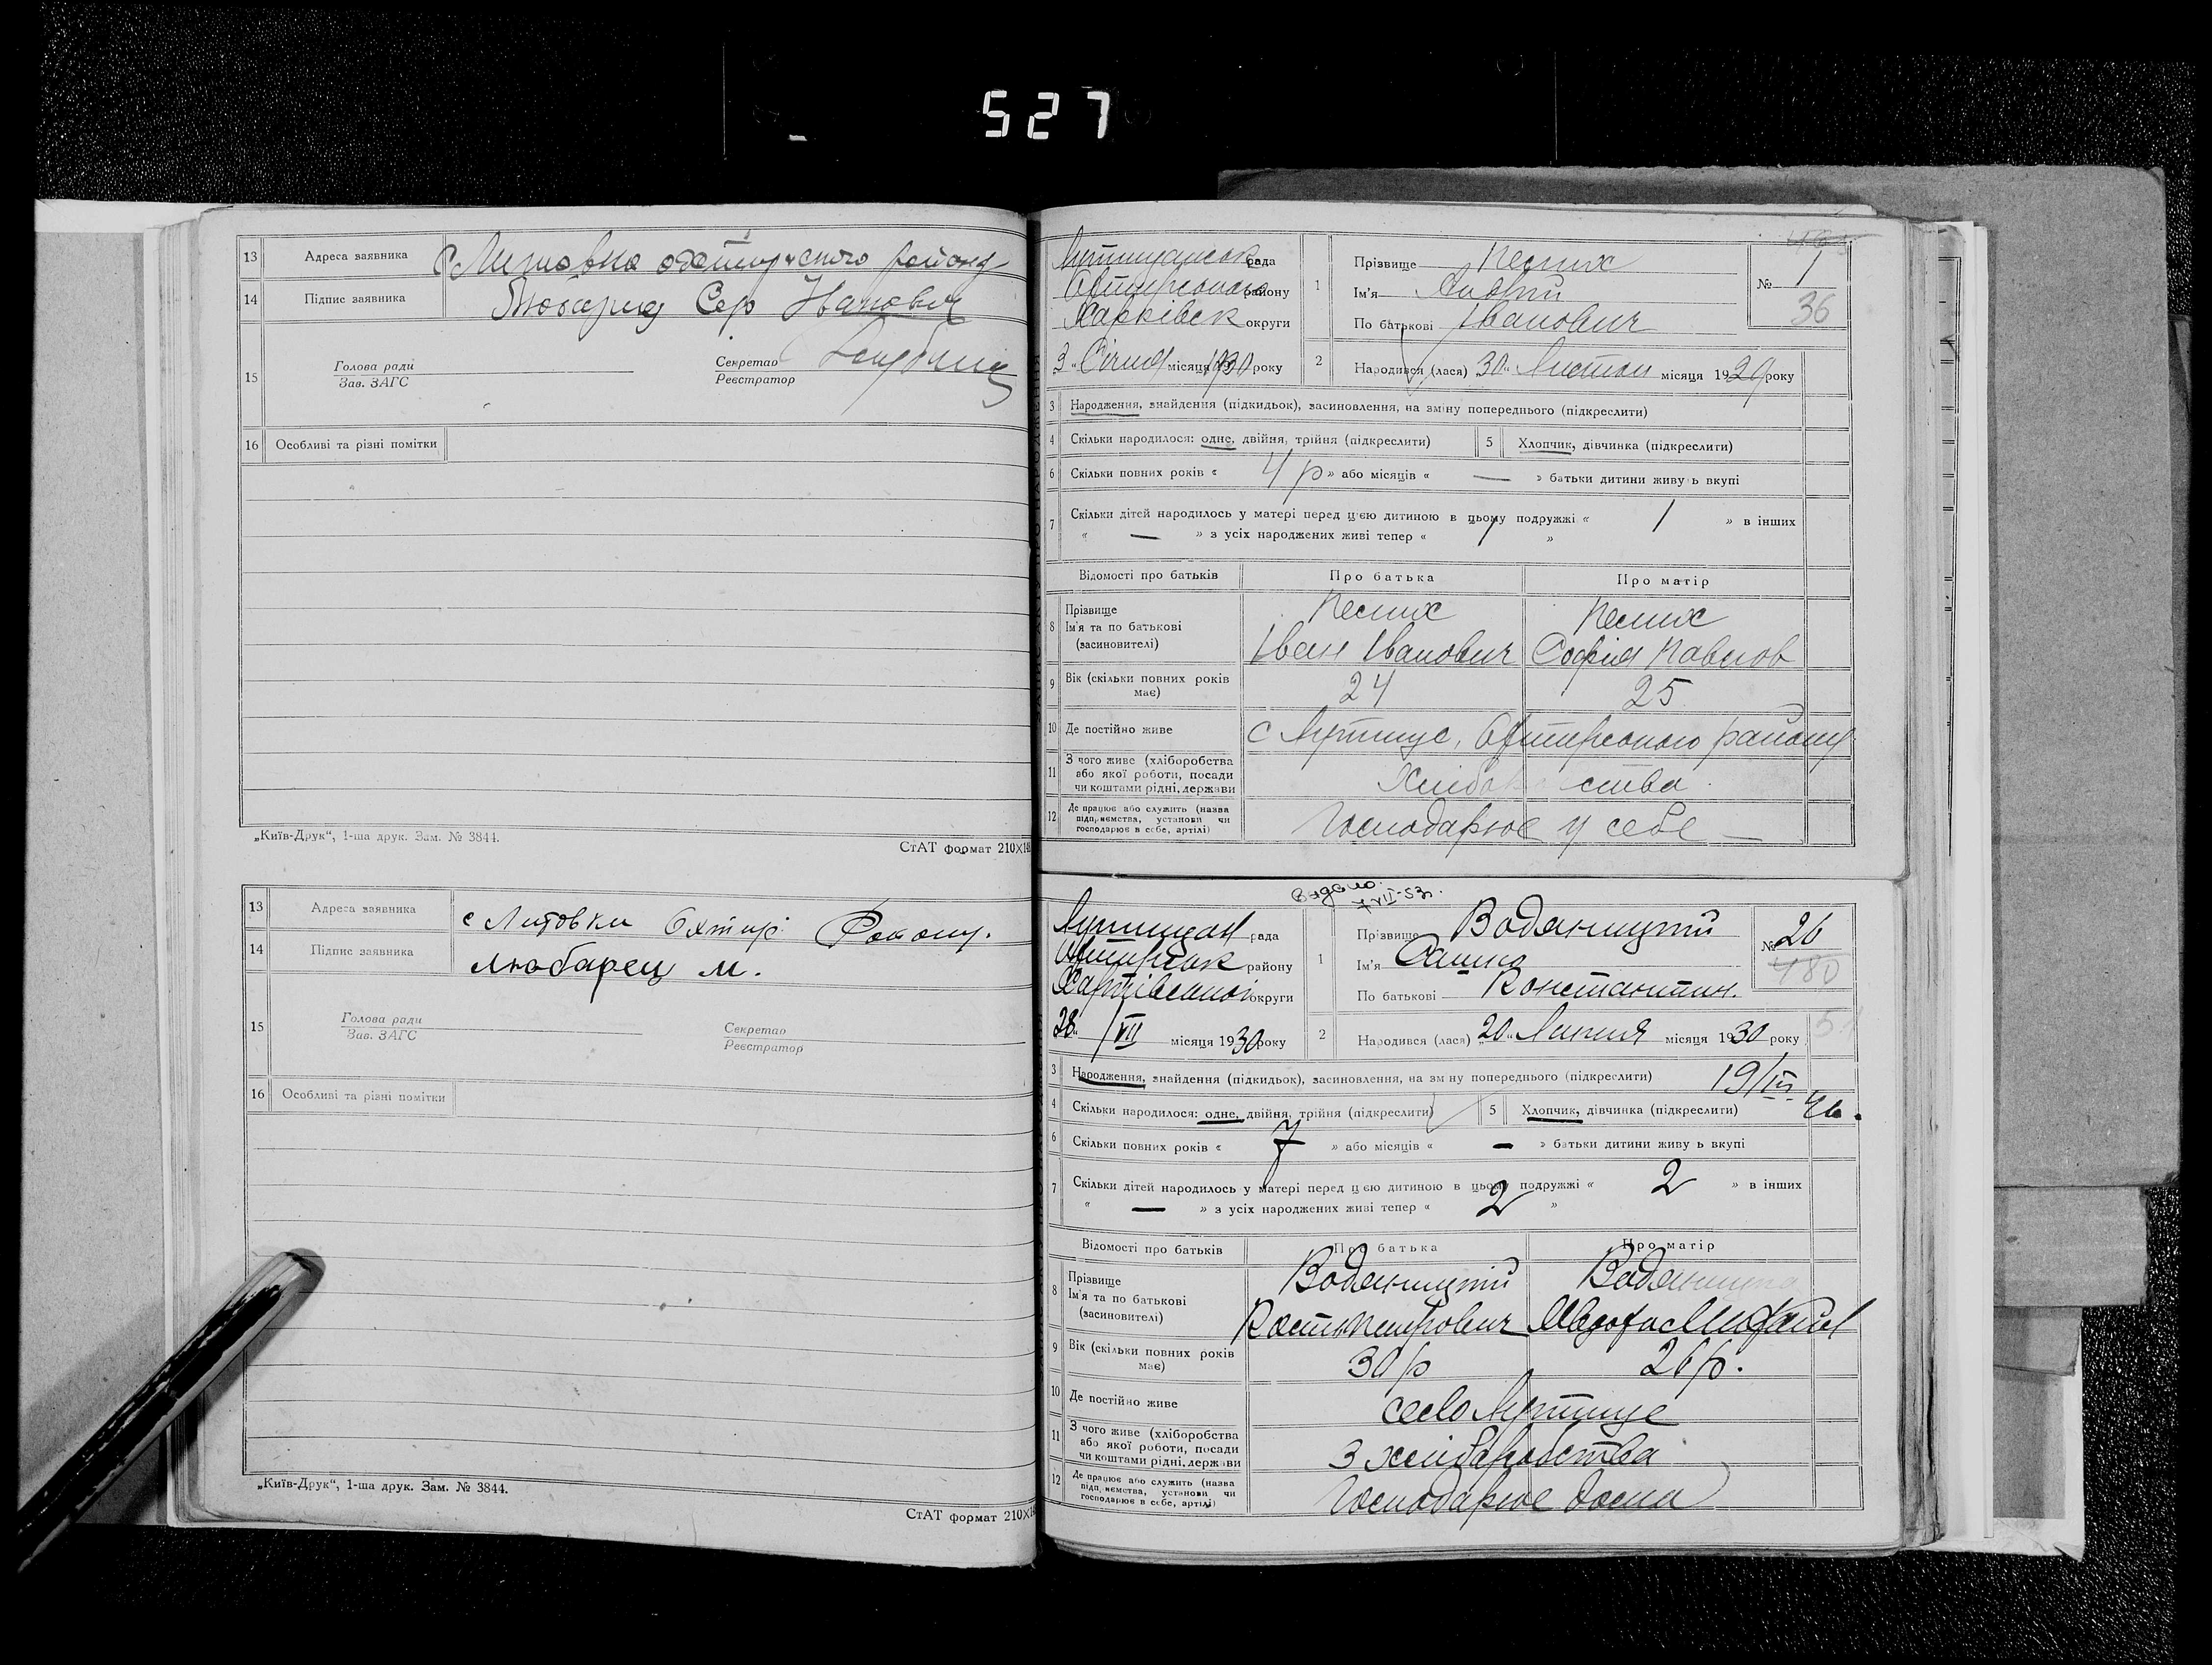 527
13 Адреса заявника С Литовка району
14 Підпис заявника Сер Іванович
15 Голова ради Зав. ЗАГС Секретар Реєстратор
16 Особливі та різні помітки
„Київ-Друк“, 1-ша друк. Зам. № 3844.
СтАТ формат 210×148
13 Адреса заявника с Литовки Охтир.
14 Підпис заявника Любарец М.
15 Голова ради Зав. ЗАГС Секретар Реєстратор
16 Особливі та різні помітки
„Київ-Друк“, 1-ша друк. Зам. № 3844.
СтАТ формат 210×
рада
району
Харківськ округи
3 " Січня місяця 1930 року
1 Прізвище Песих
Ім'я Андрій
По батькові Іванович
№ 1
36
2 Народився (лася) 30 " Листоп місяця 1929 року
3 Народження, знайдення (підкидьок), засиновлення, на зміну попереднього (підкреслити)
4 Скільки народилося: одне, двійня, трійня (підкреслити) 5 Хлопчик, дівчинка (підкреслити)
6 Скільки повних років « 4 р » або місяців « — » батьки дитини живуть вкупі
7 Скільки дітей народилось у матері перед цією дитиною в цьому подружжі « 1 » в інших
« — » з усіх народжених живі тепер « 1 »
Відомості про батьків Про батька Про матір
8 Прізвище Ім'я та по батькові (засиновителі)
Песих Песих
Іван Іванович Софія Павлов
9 Вік (скільки повних років має) 24 25
10 Де постійно живе с Лутище, району
11 З чого живе (хліборобства або якої роботи, посади чи коштами рідні, держави
12 Де працює або служить (назва підприємства, установи чи господарює в себе, артілі) Господарює у себе —
Видано. 7 VII-53р.
рада
району
округи
28 " VII місяця 1930 року
1 Прізвище Водяницкий
Ім'я Сашко
По батькові Константин.
№ 26
180
2 Народився (лася) 20 " Липня місяця 1930 року
3 Народження, знайдення (підкидьок), засиновлення, на зміну попереднього (підкреслити) 19/III
4 Скільки народилося: одне, двійня, трійня (підкреслити) 5 Хлопчик, дівчинка (підкреслити) 46.
6 Скільки повних років « 7 » або місяців « — » батьки дитини живуть вкупі
7 Скільки дітей народилось у матері перед цією дитиною в цьому подружжі « 2 » в інших
« — » з усіх народжених живі тепер « 2 »
Відомості про батьків Про батька Про матір
8 Прізвище Ім'я та по батькові (засиновителі)
Водяницкий
Кост Петрович
9 Вік (скільки повних років має) 30 р 26 р.
10 Де постійно живе село Лутище
11 З чого живе (хліборобства або якої роботи, посади чи коштами рідні, держави З хліборобства
12 Де працює або служить (назва підприємства, установи чи господарює в себе, артілі) Господарює дома